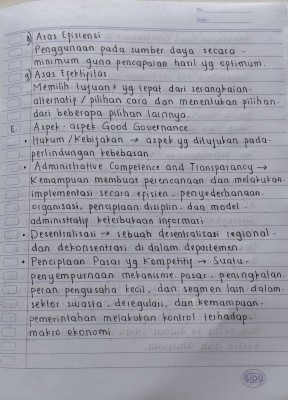 No:
Date:
f) Asas Efisiensi
Penggunaan pada sumber daya secara -
minimum guna pencapaian hasil yg optimum.
g) Asas Efektifitas
Memilih tujuan² yg tepat dari serangkaian -
alternatif / pilihan cara dan menentukan pilihan -
dari beberapa pilihan lainnya.
E. Aspek-aspek Good Governance
• Hukum / Kebijakan → aspek yg ditujukan pada -
perlindungan kebebasan.
• Administrative Competence and Transparancy →
Kemampuan membuat perencanaan dan melakukan
implementasi secara efisien, penyederhanaan
organisasi, penciptaan disiplin dan model
administratif keterbukaan informasi
• Desentralisasi → sebuah desentralisasi regional -
dan dekonsentrasi di dalam departemen.
• Penciptaan Pasar yg Kompetitif → Suatu -
penyempurnaan mekanisme pasar, peningkatan.
peran pengusaha kecil, dan segmen lain dalam.
sektor swasta, deregulasi, dan kemampuan.
pemerintahan melakukan kontrol terhadap.
makro ekonomi
SIDU